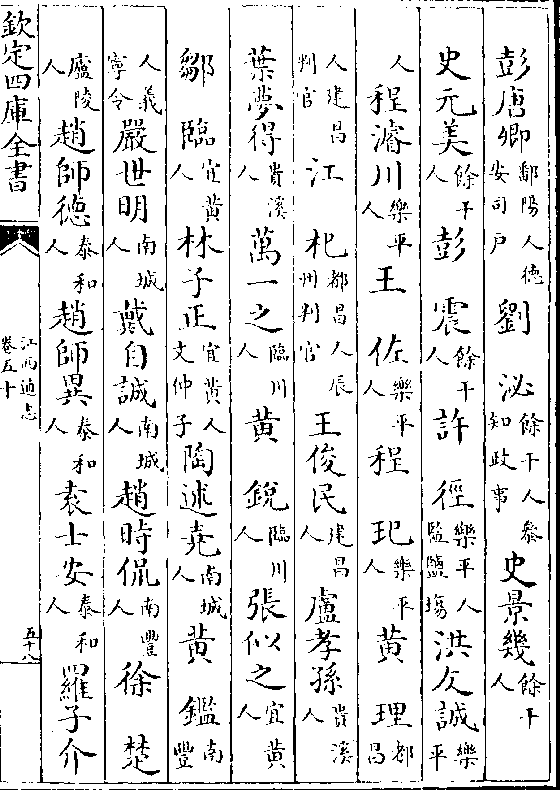 彭唐卿鄱陽人德安司戶 劉 泌餘干人參知政事 史景幾餘干人
史元美餘干人 彭 震餘干人 許 徑樂平人監鹽場 洪友誠樂平
人 程濬川樂平人 王 佐樂平人 程 玘樂平人 黄 理都昌
人建昌判官 江 杞都昌人辰州判官 王俊民建昌人 盧孝孫貴溪人
葉夢得貴溪人 萬一之臨川人 黄 銳臨川人 張似之宜黄人
鄒 臨宜黄人 林子正宜黄人文仲子 陶述堯南城人 黄 鑑南豐
人義寧令 嚴世明南城人 戴自誠南城人 趙時侃南豐人 徐 楚
廬陵人 趙師德泰和人 趙師異泰和人 袁士安泰和人 羅子介
欽定四庫全書
江西通志
卷五十
五十八